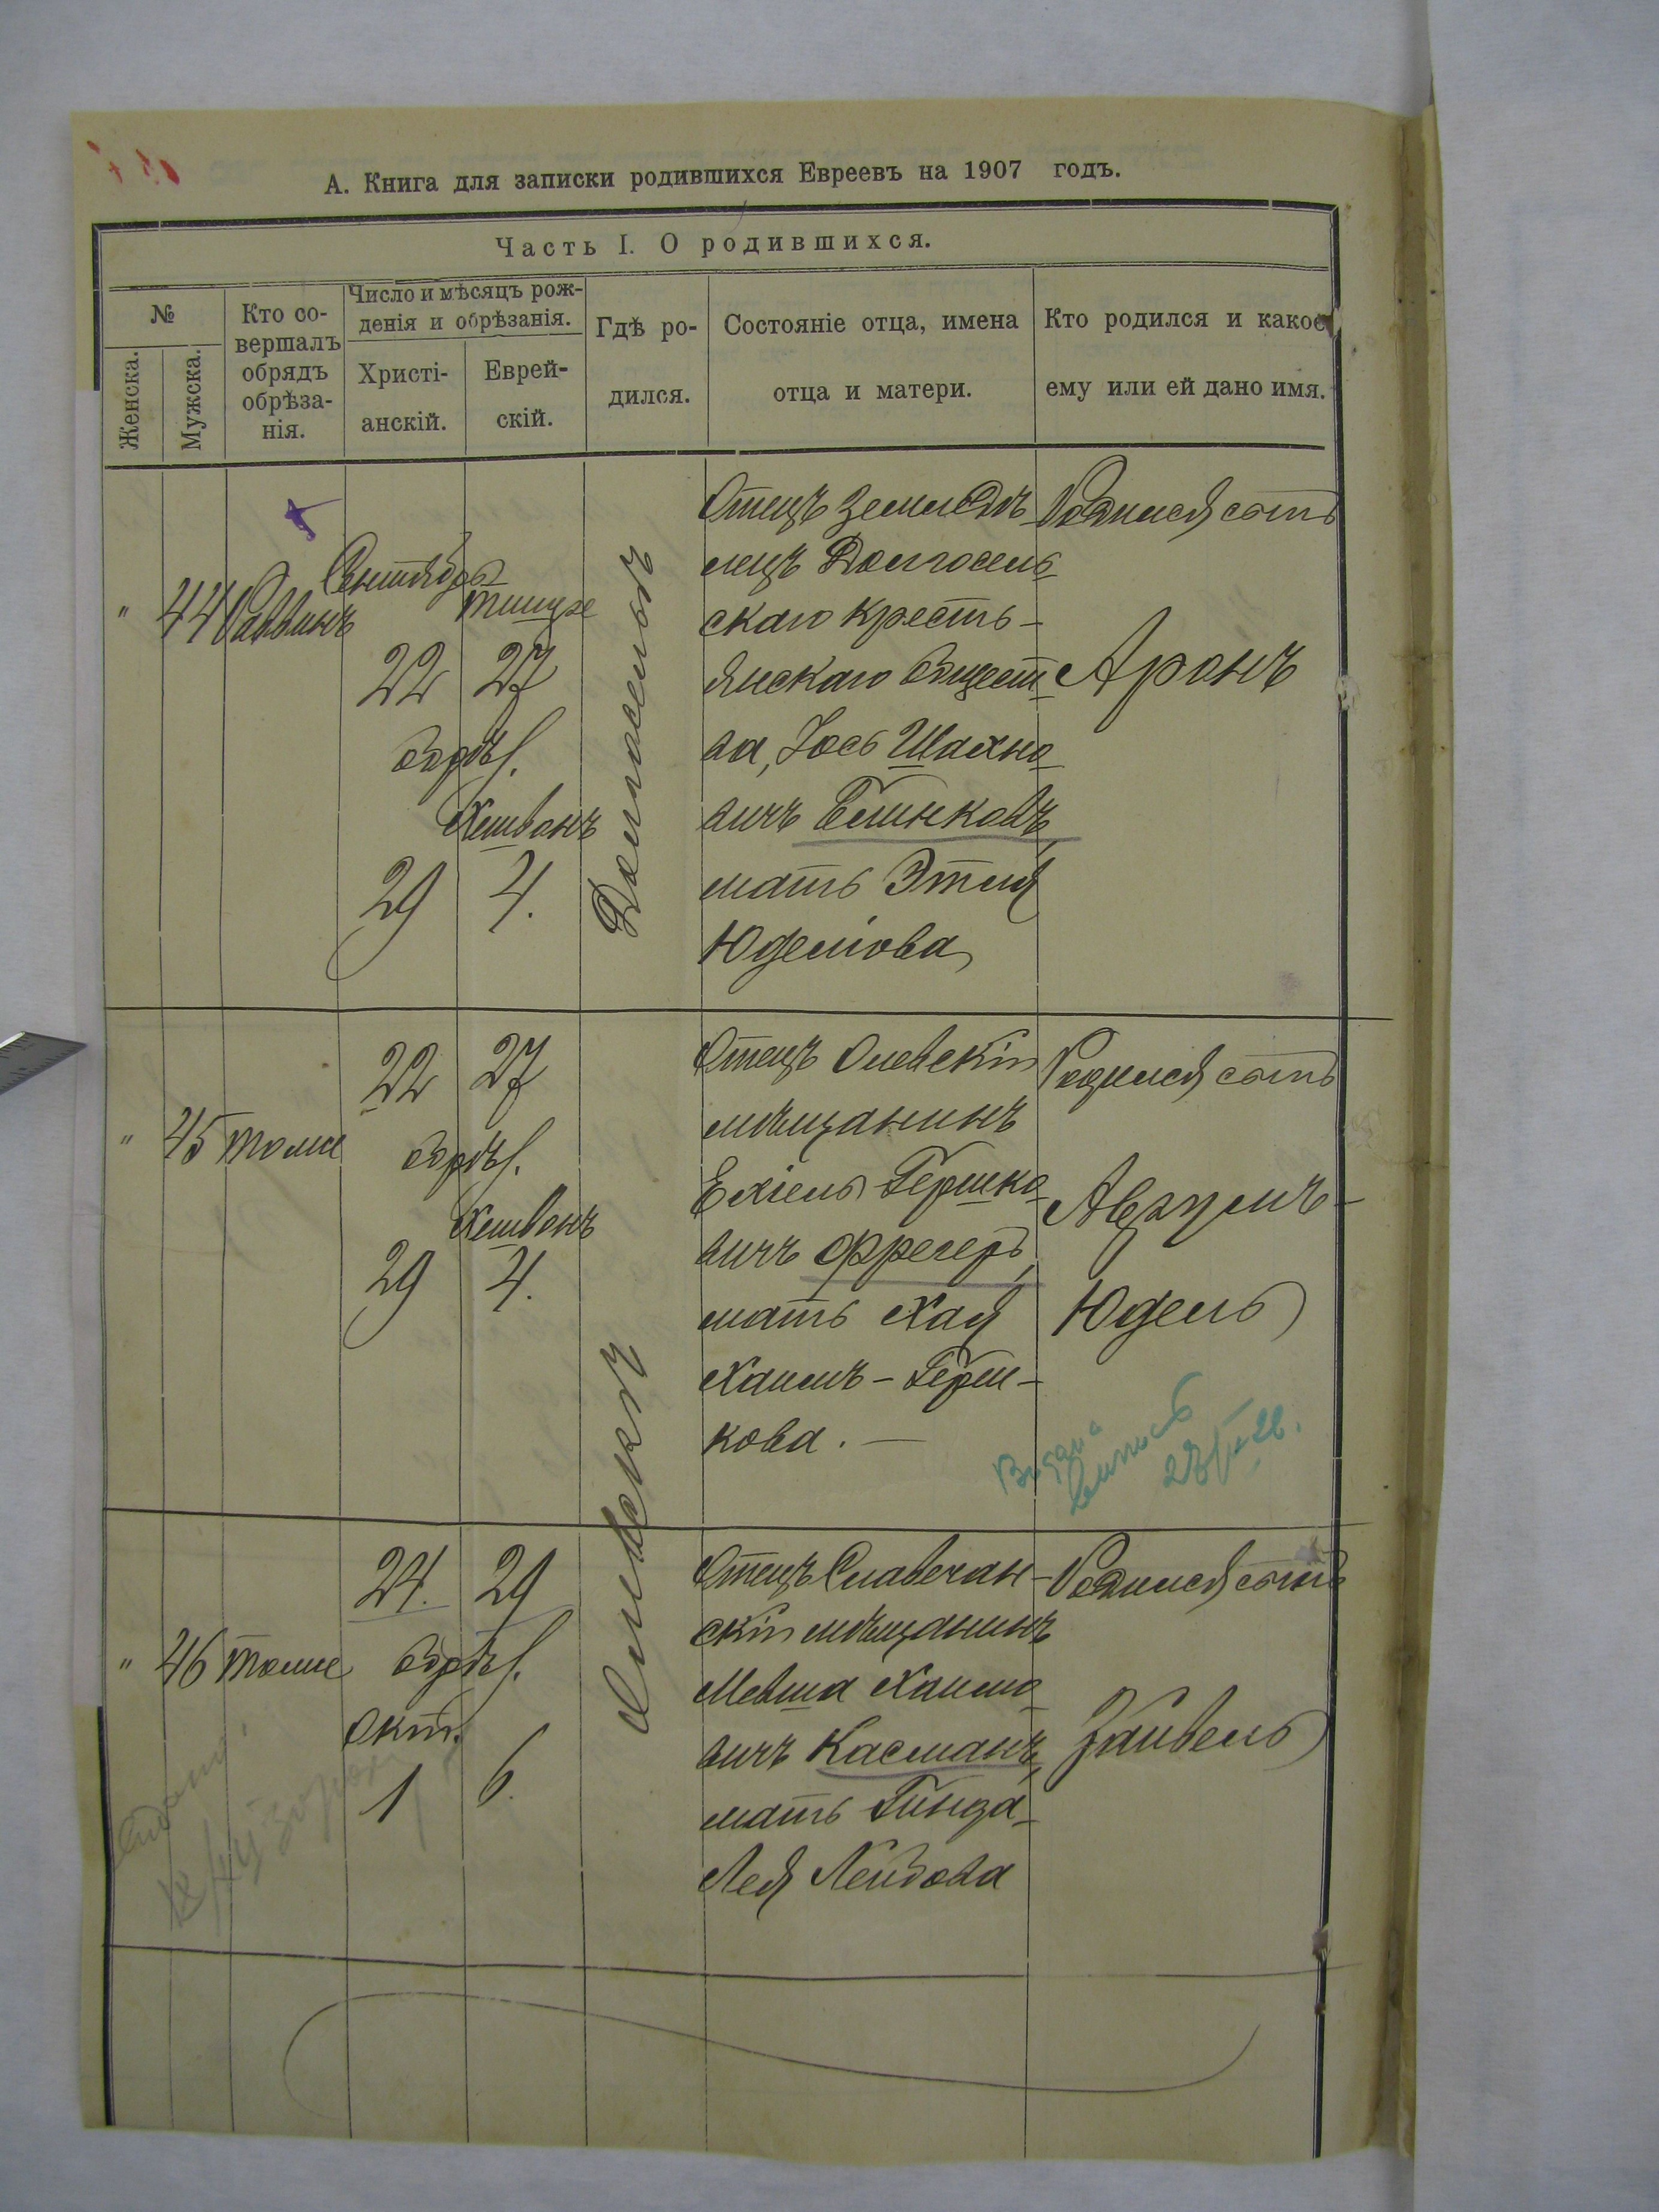 А. Книга для записки родившихся Евреевъ на 1907 годъ.
Часть I. О родившихся.
№
Женска.
Мужска.
Кто со-
вершалъ
обрядъ
обрѣза-
нія.
Число и мѣсяцъ рож-
денія и обрѣзанія.
Христі-
анскій.
Еврей-
скій.
Гдѣ ро-
дился.
Состояніе отца, имена
отца и матери.
Кто родился и какое
ему или ей дано имя.
" 44 Раввинъ
Сентябрь
Тишре
22 27
обрѣз.
Хешвонъ
29 4.
Отецъ земледѣ-
лецъ Долгосель-
скаго кресть-
янскаго общест-
ва, Іось Шахно-
вичъ Блинковъ,
мать Этля
Юделіова
Родился сынъ
Аронъ
" 45 тоже
22 27
обрѣз.
Хешвонъ
29 4.
Отецъ Олевскій
мѣщанинъ
Ехіель Гершко-
вичъ Фрегеръ,
мать Хая
Хаимъ-Герш-
кова. —
Родился сынъ
Аврумъ-
Юдель
" 46 тоже
24. 29
обрѣз.
Окт.
1 6.
Отецъ Славечан-
скій мѣщанинъ
Мевша Хаимо-
вичъ Касманъ,
мать Гинда-
Лея Лейбова
Родился сынъ
Зайвель